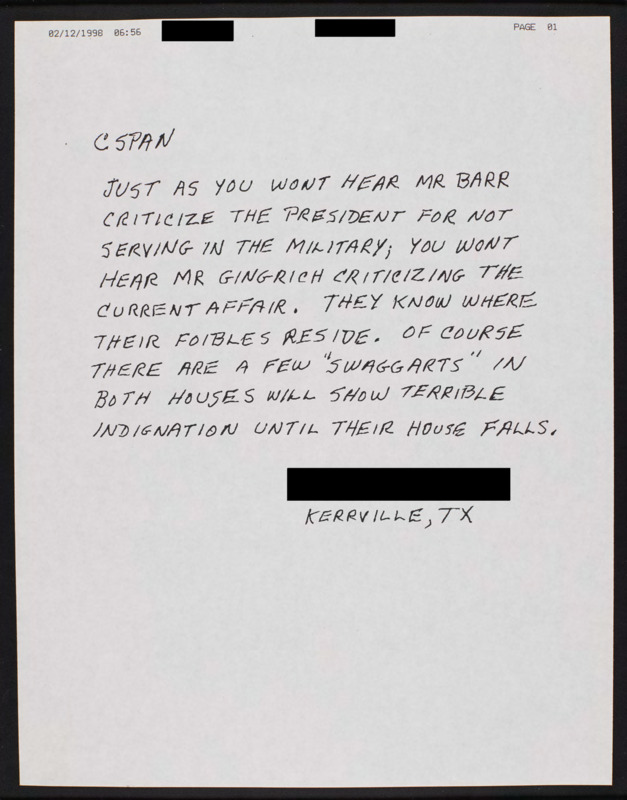 02/12/1998 06:56 PAGE 01
CSPAN
JUST AS YOU WONT HEAR MR BARR
CRITICIZE THE PRESIDENT FOR NOT
SERVING IN THE MILITARY; YOU WONT
HEAR MR GINGRICH CRITICIZING THE
CURRENT AFFAIR. THEY KNOW WHERE
THEIR FOIBLES RESIDE. OF COURSE
THERE ARE A FEW "SWAGGARTS" IN
BOTH HOUSES WILL SHOW TERRIBLE
INDIGNATION UNTIL THEIR HOUSE FALLS.
KERRVILLE, TX